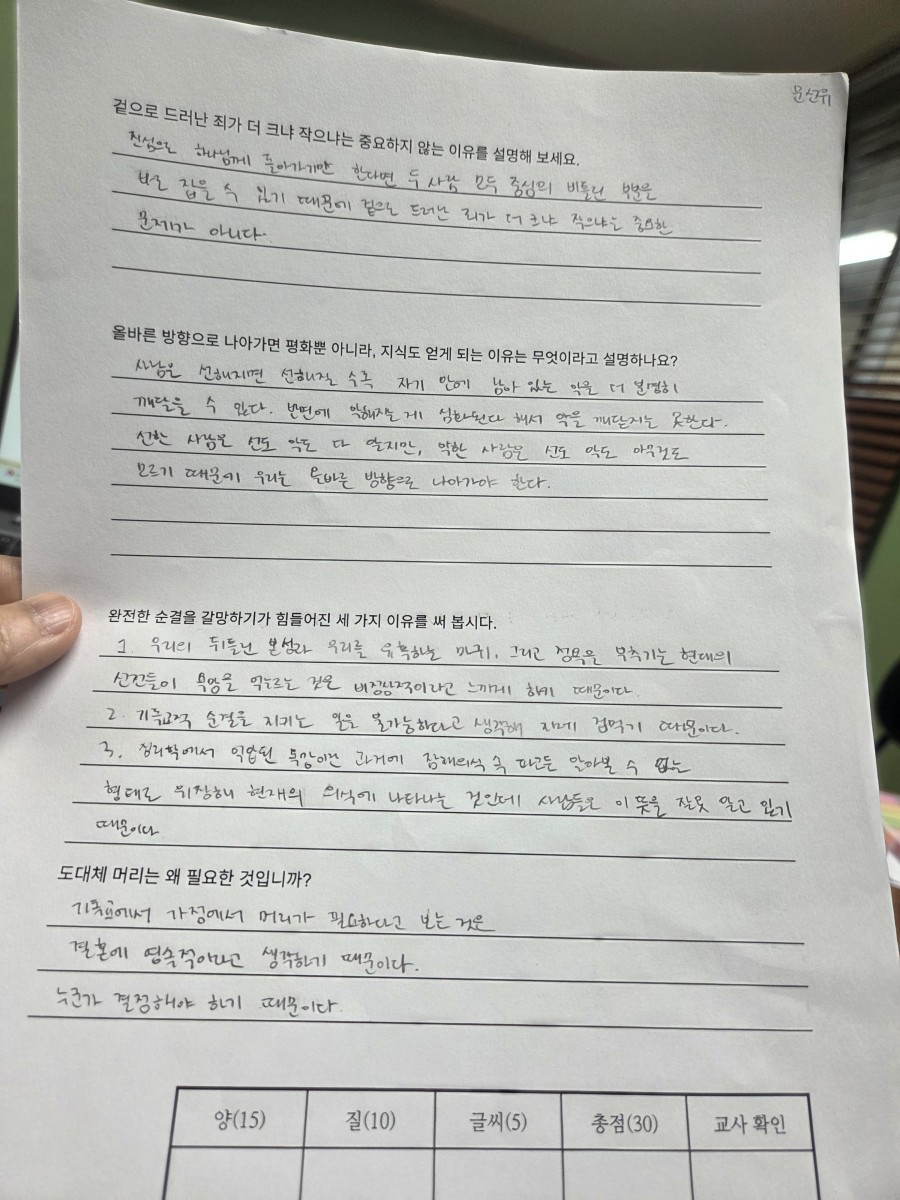 문선우
겉으로 드러난 죄가 더 크냐 작으냐는 중요하지 않는 이유를 설명해 보세요.
진심으로 하나님께 돌아가기만 한다면 두 사람 모두 중심의 비틀린 부분을
바로 잡을 수 있기 때문에 겉으로 드러난 죄가 더 크냐 작으냐는 중요한
문제가 아니다.
올바른 방향으로 나아가면 평화뿐 아니라, 지식도 얻게 되는 이유는 무엇이라고 설명하나요?
사람은 선해지면 선해질 수록 자기 안에 남아 있는 악을 더 분명히
깨달을 수 있다. 반면에 악해지는게 심화된다 해서 악을 깨닫지는 못한다.
선한 사람은 선도 악도 다 알지만, 악한 사람은 선도 악도 아무것도
모르기 때문에 우리는 올바른 방향으로 나아가야 한다.
완전한 순결을 갈망하기가 힘들어진 세 가지 이유를 써 봅시다.
1. 우리의 뒤틀린 본성과 우리를 유혹하는 마귀, 그리고 정욕을 부추기는 현대의
선전들이 욕망을 억누르는 것은 비정상적이라고 느끼게 하기 때문이다.
2. 기독교적 순결을 지키는 일은 불가능하다고 생각해 지레 겁먹기 때문이다.
3. 심리학에서 억압된 욕망이란 과거에 잠재의식 속 파고든 알아볼 수 없는
형태로 위장해 현재의 의식에 나타나는 것인데 사람들은 이 뜻을 잘못 알고 있기
때문이다
도대체 머리는 왜 필요한 것입니까?
기독교에서 가정에서 머리가 필요하다고 보는 것은
결혼에 영속적이라고 생각하기 때문이다.
누군가 결정해야 하기 때문이다.
양(15) 질(10) 글씨(5) 총점(30) 교사 확인